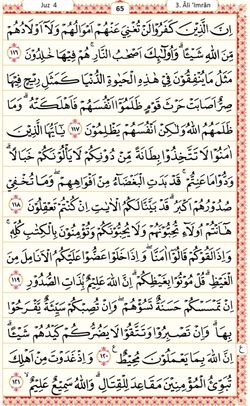 Juz 4
65
3. Āli 'Imrân
اِنَّ الَّذِيْنَ كَفَرُوْا لَنْ تُغْنِيَ عَنْهُمْ اَمْوَالُهُمْ وَلَآ اَوْلَادُهُمْ
مِّنَ اللّٰهِ شَيْـًٔا ۗ وَاُولٰۤىِٕكَ اَصْحٰبُ النَّارِ ۚ هُمْ فِيْهَا خٰلِدُوْنَ ١١٦
مَثَلُ مَا يُنْفِقُوْنَ فِيْ هٰذِهِ الْحَيٰوةِ الدُّنْيَا كَمَثَلِ رِيْحٍ فِيْهَا
صِرٌّ اَصَابَتْ حَرْثَ قَوْمٍ ظَلَمُوْٓا اَنْفُسَهُمْ فَاَهْلَكَتْهُ ۗ وَمَا
ظَلَمَهُمُ اللّٰهُ وَلٰكِنْ اَنْفُسَهُمْ يَظْلِمُوْنَ ١١٧ يٰٓاَيُّهَا الَّذِيْنَ
اٰمَنُوْا لَا تَتَّخِذُوْا بِطَانَةً مِّنْ دُوْنِكُمْ لَا يَأْلُوْنَكُمْ خَبَالًا ۗ
وَدُّوْا مَا عَنِتُّمْ ۚ قَدْ بَدَتِ الْبَغْضَاۤءُ مِنْ اَفْوَاهِهِمْ ۖ وَمَا تُخْفِيْ
صُدُوْرُهُمْ اَكْبَرُ ۗ قَدْ بَيَّنَّا لَكُمُ الْاٰيٰتِ اِنْ كُنْتُمْ تَعْقِلُوْنَ ١١٨
هٰٓاَنْتُمْ اُولَاۤءِ تُحِبُّوْنَهُمْ وَلَا يُحِبُّوْنَكُمْ وَتُؤْمِنُوْنَ بِالْكِتٰبِ كُلِّهٖ ۚ
وَاِذَا لَقُوْكُمْ قَالُوْٓا اٰمَنَّا ۖ وَاِذَا خَلَوْا عَضُّوْا عَلَيْكُمُ الْاَنَامِلَ مِنَ
الْغَيْظِ ۗ قُلْ مُوْتُوْا بِغَيْظِكُمْ ۗ اِنَّ اللّٰهَ عَلِيْمٌ ۢ بِذَاتِ الصُّدُوْرِ ١١٩
اِنْ تَمْسَسْكُمْ حَسَنَةٌ تَسُؤْهُمْ ۖ وَاِنْ تُصِبْكُمْ سَيِّئَةٌ يَّفْرَحُوْا
بِهَا ۗ وَاِنْ تَصْبِرُوْا وَتَتَّقُوْا لَا يَضُرُّكُمْ كَيْدُهُمْ شَيْـًٔا ۗ
اِنَّ اللّٰهَ بِمَا يَعْمَلُوْنَ مُحِيْطٌ ١٢٠ وَاِذْ غَدَوْتَ مِنْ اَهْلِكَ
تُبَوِّئُ الْمُؤْمِنِيْنَ مَقَاعِدَ لِلْقِتَالِ ۗ وَاللّٰهُ سَمِيْعٌ عَلِيْمٌ ١٢١